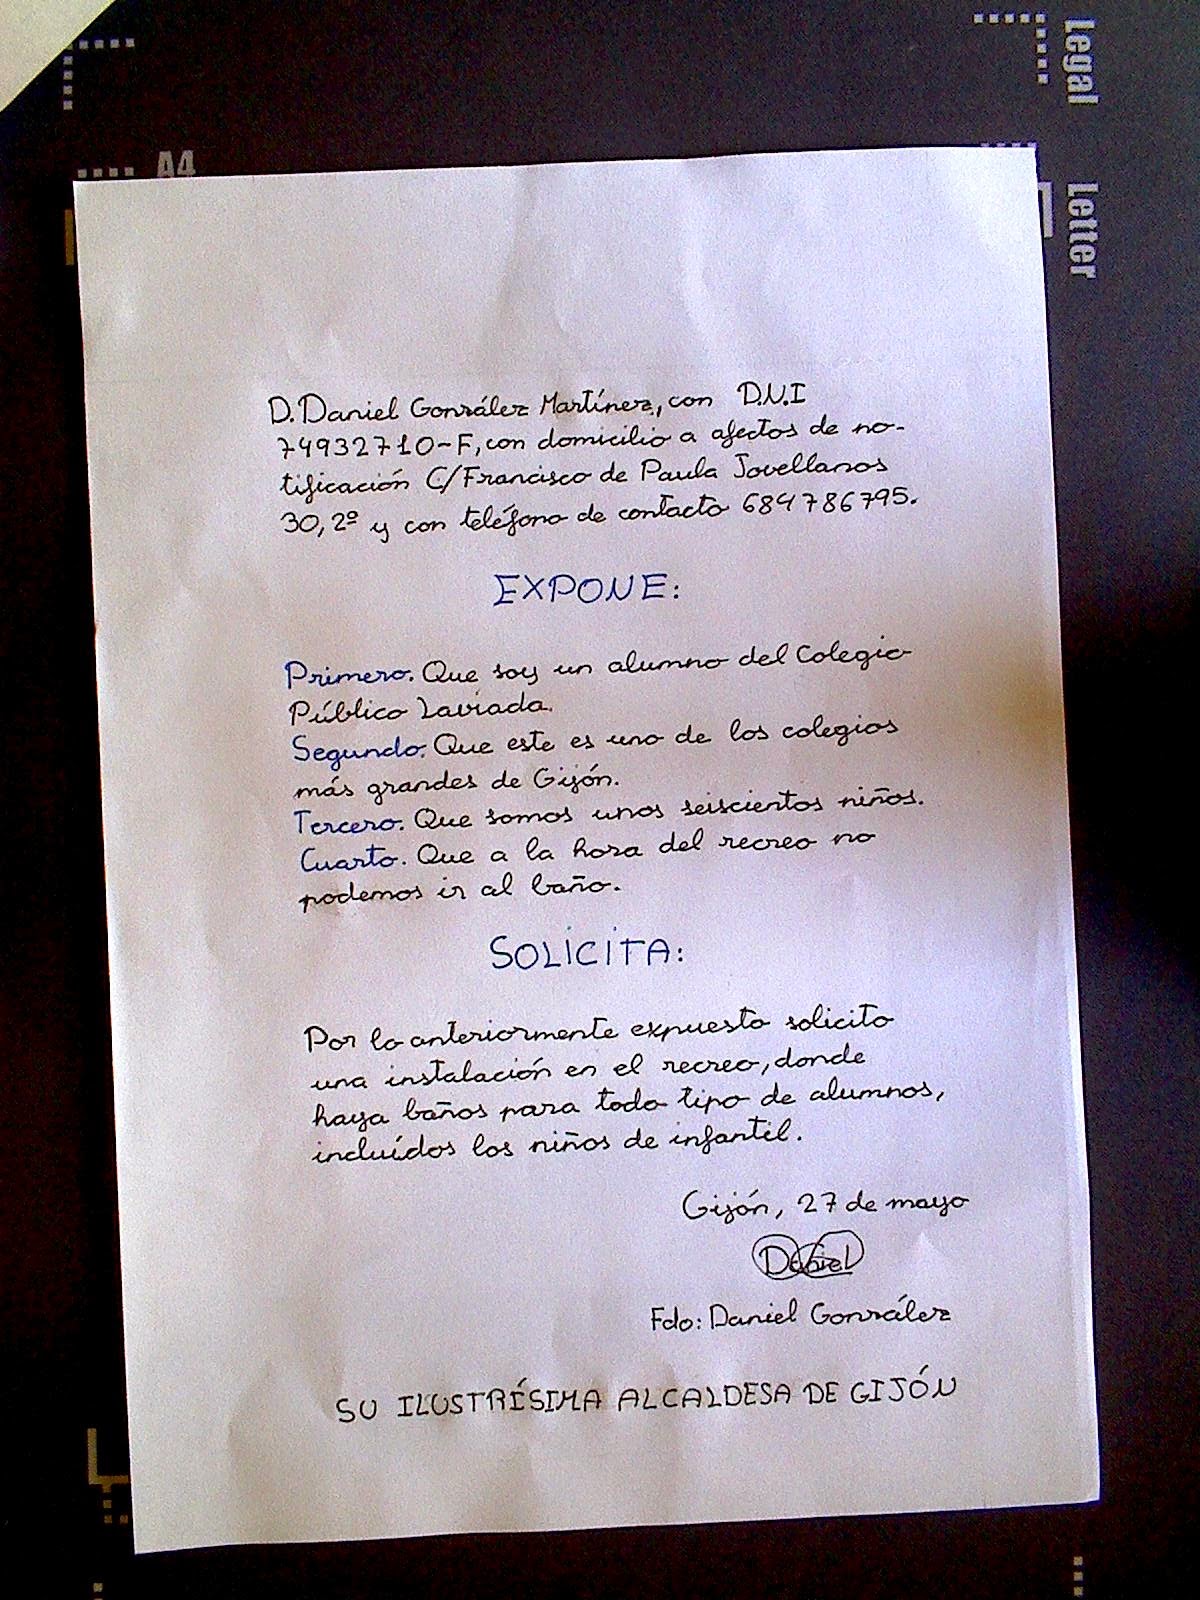 Legal
A4
Letter
D. Daniel González Martínez, con D.N.I
74932710-F, con domicilio a afectos de no-
tificación C/Francisco de Paula Jovellanos
30, 2º y con teléfono de contacto 684786795.
EXPONE:
Primero. Que soy un alumno del Colegio
Público Laviada.
Segundo. Que este es uno de los colegios
más grandes de Gijón.
Tercero. Que somos unos seiscientos niños.
Cuarto. Que a la hora del recreo no
podemos ir al baño.
SOLICITA:
Por lo anteriormente expuesto solicito
una instalación en el recreo, donde
haya baños para todo tipo de alumnos,
incluídos los niños de infantil.
Gijón, 27 de mayo
Daniel
Fdo: Daniel González
SU ILUSTRÉSIMA ALCALDESA DE GIJÓN